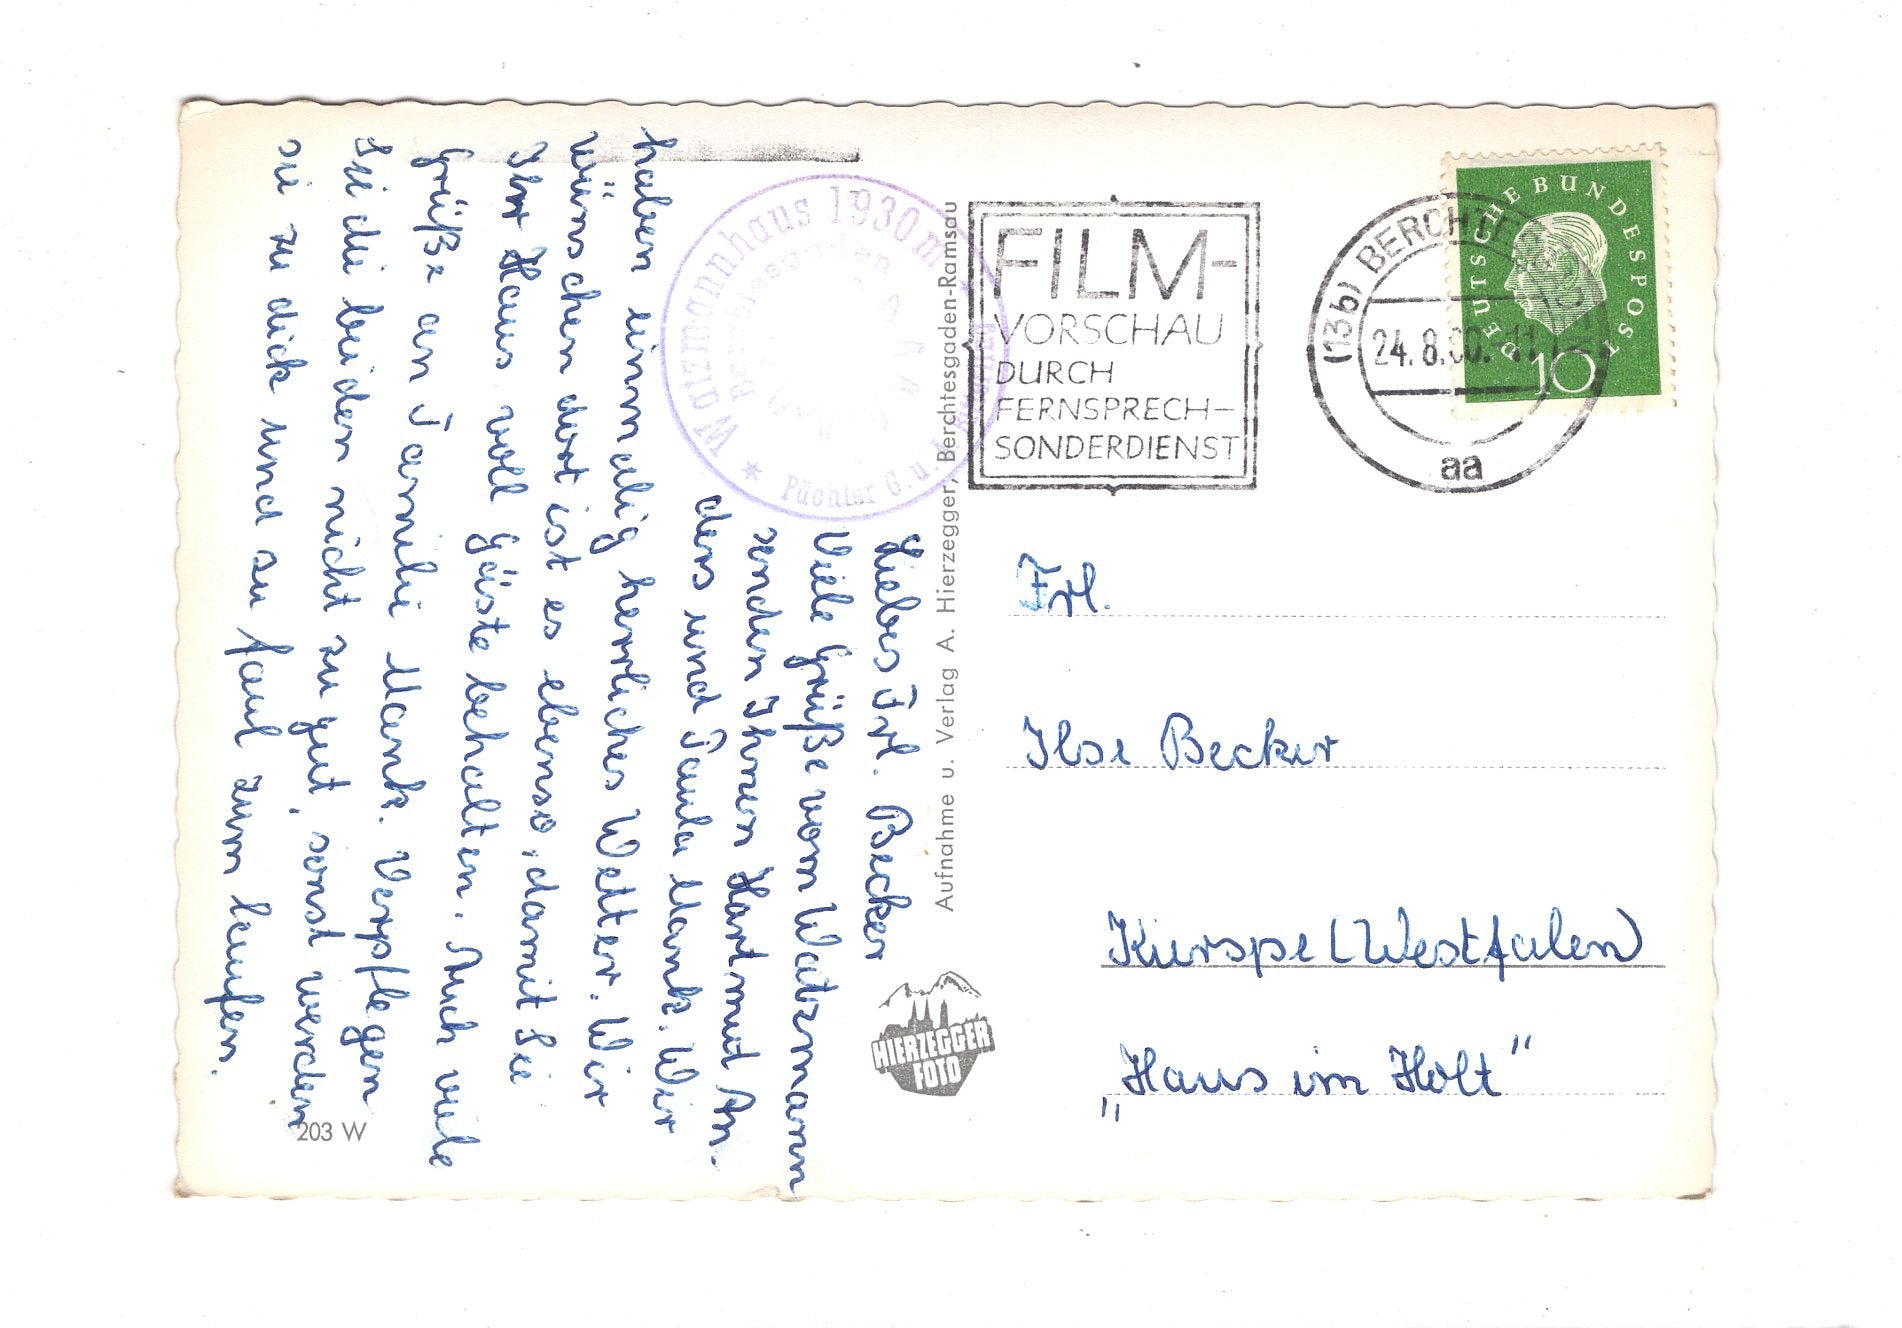 Liebes Frl. Becker
Viele Grüße vom Watzmann
senden Ihnen Hartmut An-
ders und Paula Mank. Wir
haben einmalig herrliches Wetter. Wir
wünschen dort ist es ebenso, damit Sie
Ihr Haus voll Gäste behalten. Auch viele
Grüße an Familie Mank. Verpflegen
Sie die beiden nicht zu gut, sonst werden
sie zu dick und zu faul zum laufen.
203 W
Watzmannhaus 1930 m
Berchtesgaden
Püchter G. u. A.
Aufnahme u. Verlag A. Hierzegger, Berchtesgaden-Ramsau
HIERZEGGER
FOTO
FILM-
VORSCHAU
DURCH
FERNSPRECH-
SONDERDIENST
(13b) BERCHT
24.8.60.-11
aa
DEUTSCHE BUNDESPOST
10
Frl.
Ilse Becker
Kierspe (Westfalen)
„Haus im Holt"